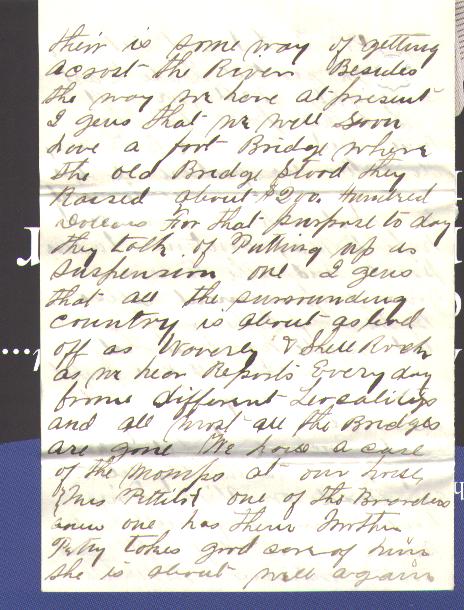 their is some way of getting
acrost the River Besides
the way we have at present
I gess that we well soon
have a foot Bridge where
the old Bridge stood they
Raised about $200. Hundred
Dollars For that purpose to day
they talk of Putting up as
suspension one I gess
that all the surrounding
country is about as bad
off as Waverly & Shell Rock
as we hear Reports Every day
frome different Locealitys
and all most all the Bridges
are gone We have a case
of the Momps at our house
one of the Boarders
one has them Mother
takes good care of him
she is about well again